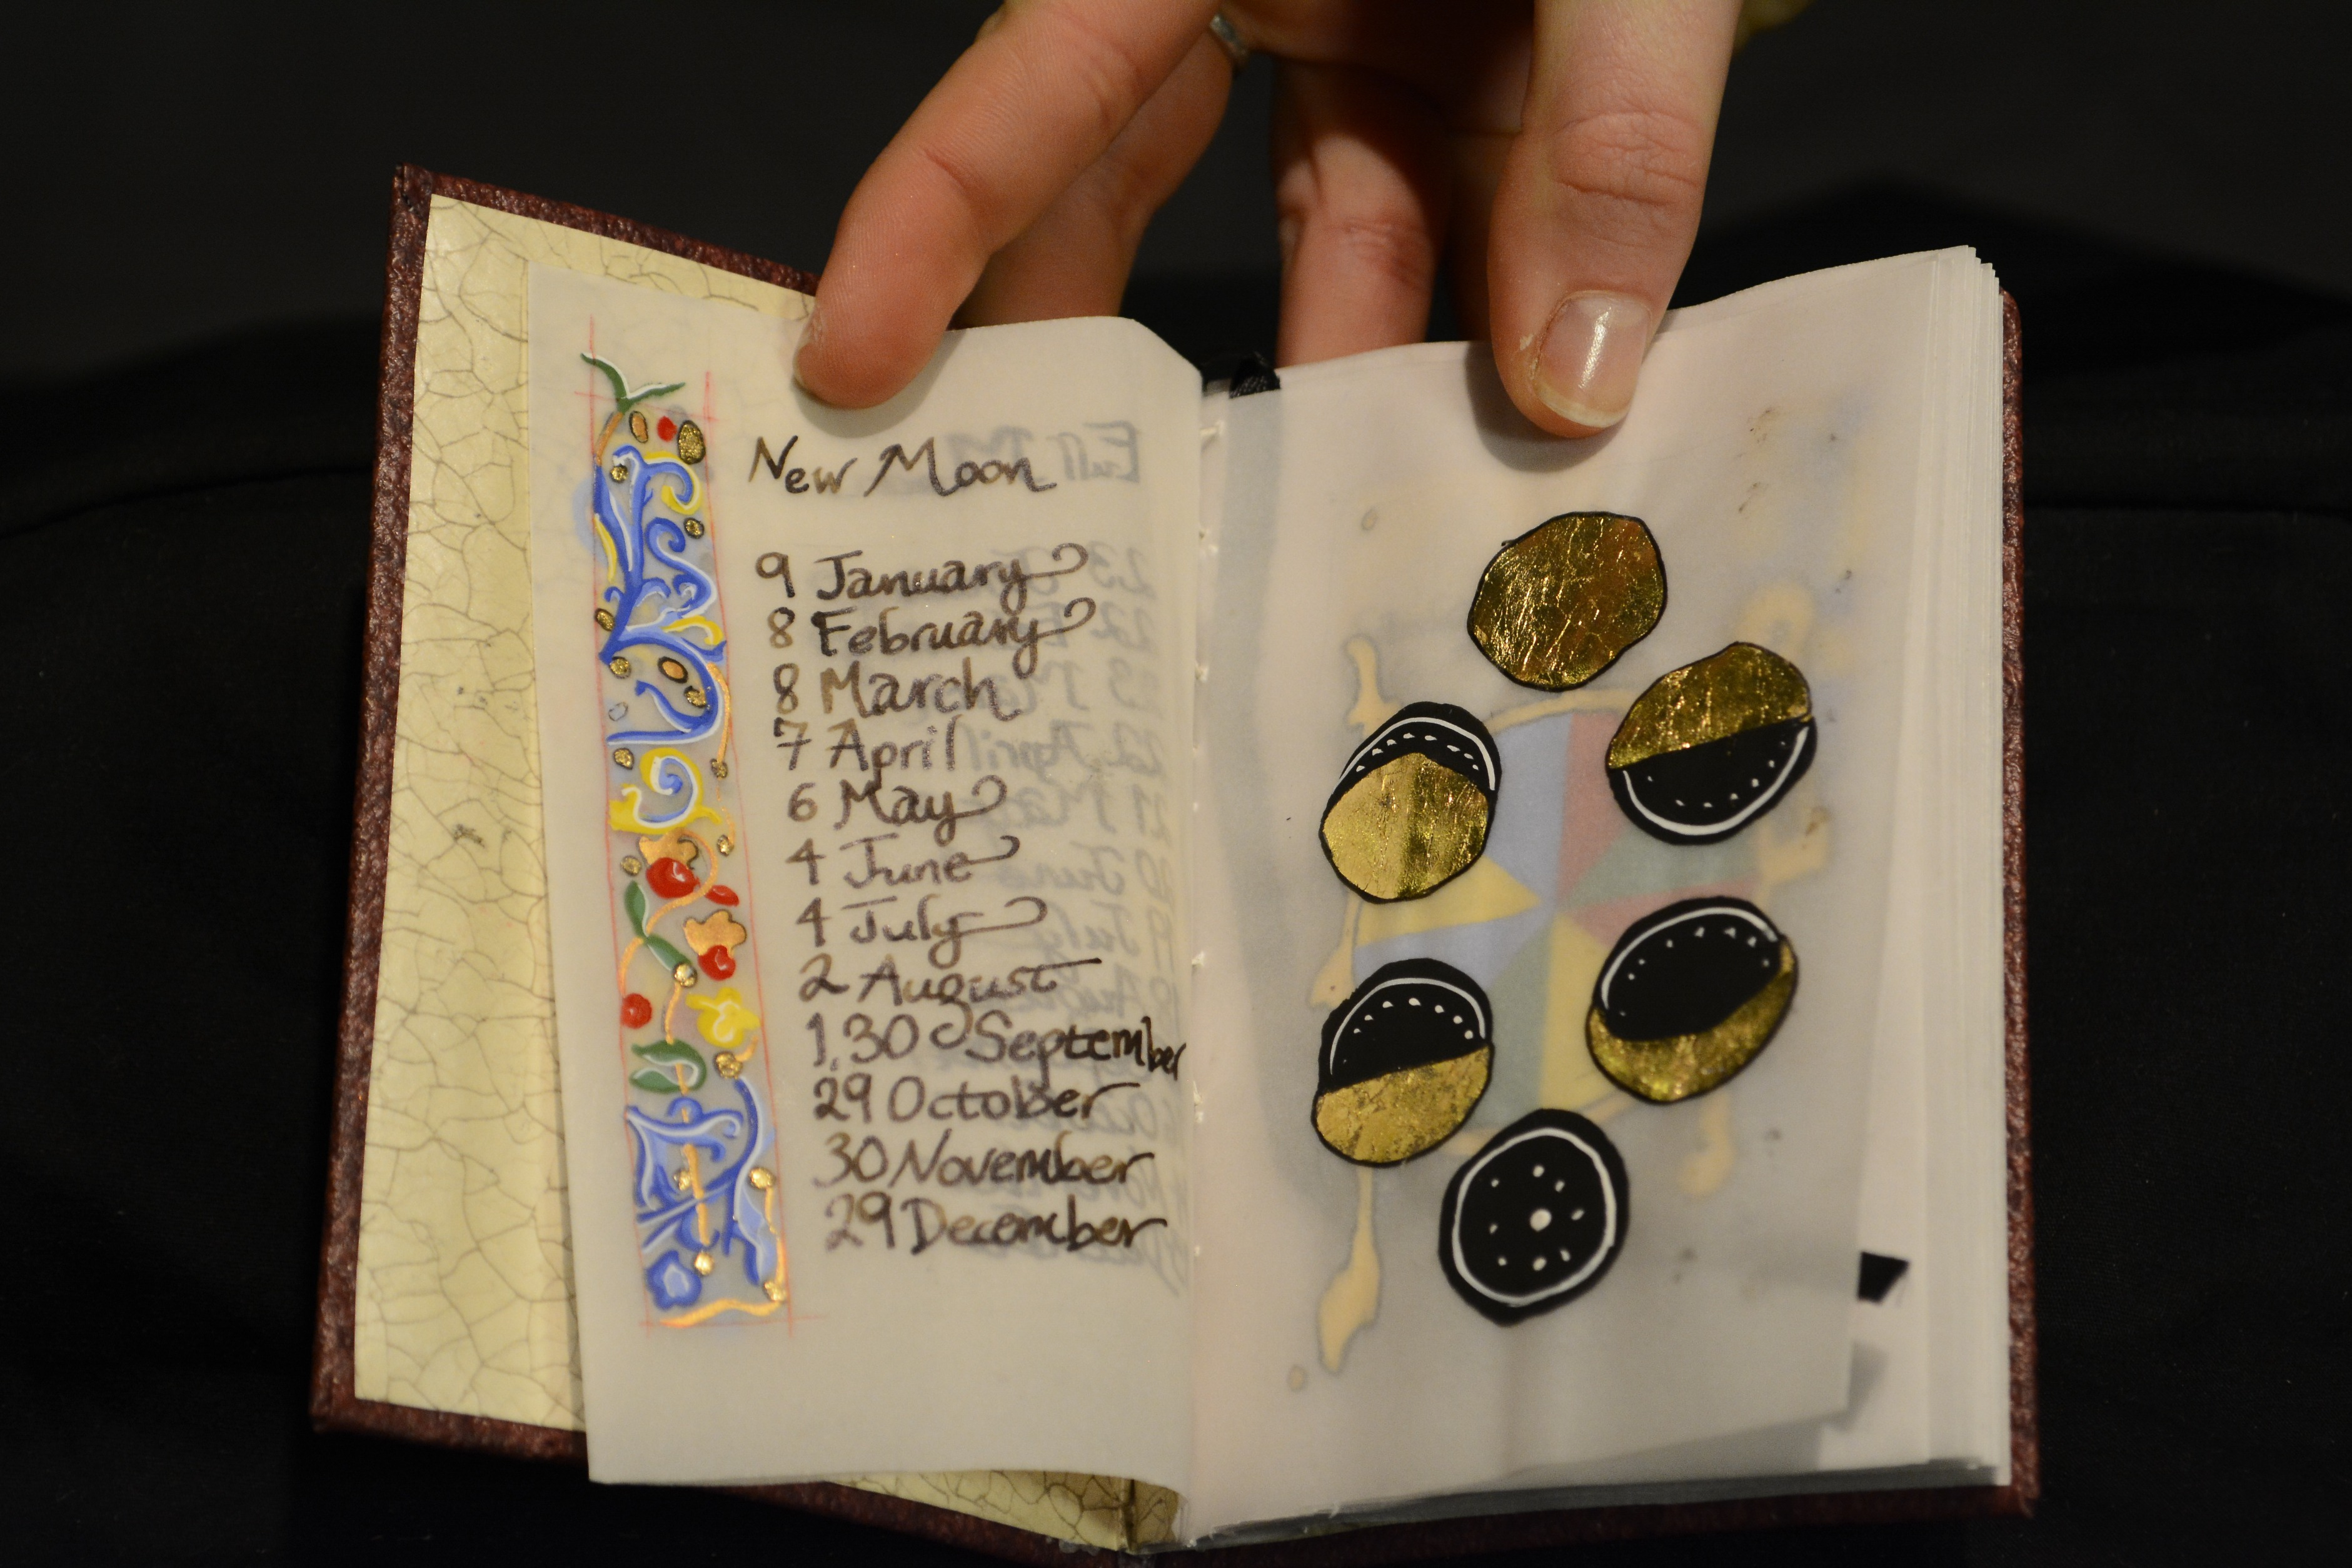 New Moon
9 January
8 February
8 March
7 April
6 May
4 June
4 July
2 August
1,30 September
29 October
30 November
29 December